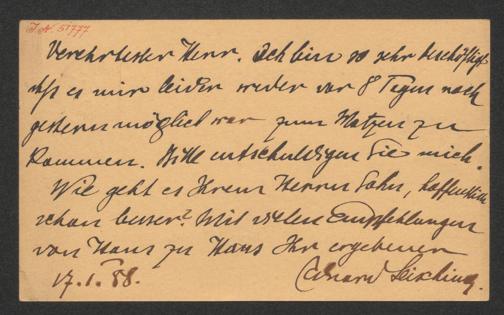 J. N. 51777
Verehrtester Herr. Ich bin so sehr beschäftigt
daß es mir leider weder vor 8 Tagen noch
gestern möglich war zum zu
kommen. Bitte entschuldigen Sie mich.
Wie geht es Ihrem Herrn Sohn, hoffentlich
schon besser? Mit vielen Empfehlungen
von Haus zu Haus Ihr ergebener
17.1.88. Eduard Leisching.